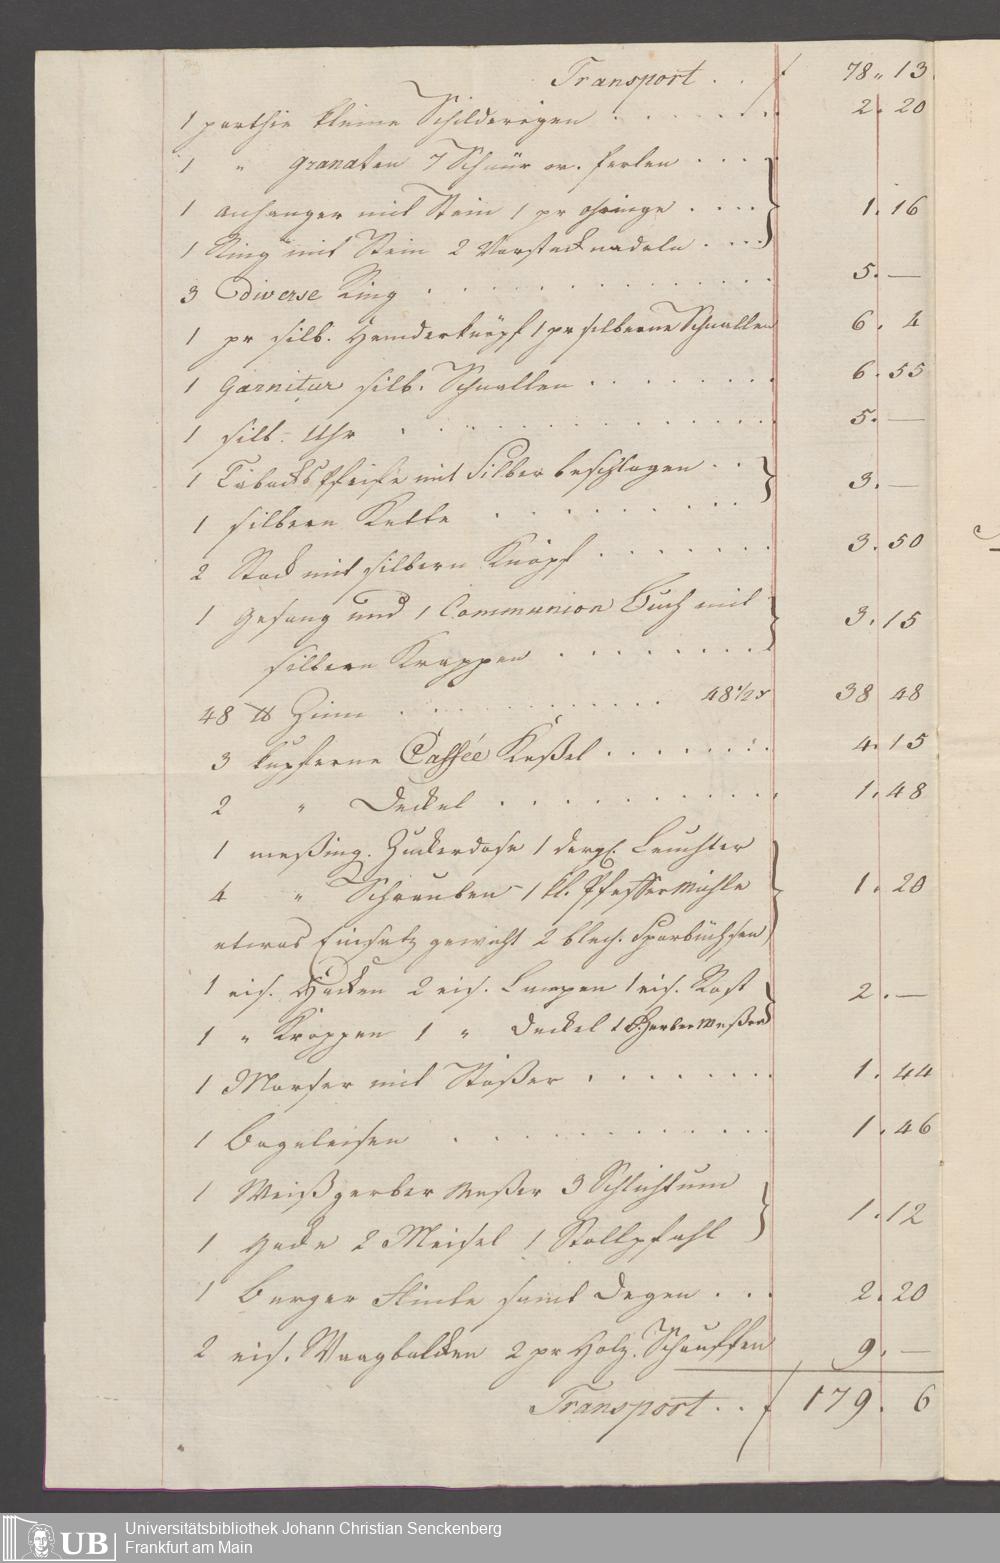 Transport . . f 78 „ 13
1 parthie kleine Schildereyen . . . . . . . 2. 20
1 „ Granaten 7 Schnür or. Perlen . . . .
1 anhanger mit Stein 1 pr ohrringe . . . . 1. 16
1 Ring mit Stein 2 Vorstecknadeln . . . .
3 diverse Ring . . . . . . . . . . 5. —
1 pr silb. Hemderknöpf 1 pr silberne Schnallen 6. 4
1 Garnitur silb. Schnallen . . . . . . . 6. 55
1 silb. Uhr . . . . . . . . . . . 5. —
1 Tabacks Pfeife mit Silber beschlagen . .
1 silbern Kette . . . . . . . . . 3. —
2 Stock mit silbern Knöpf . . . . . . . 3. 50
1 Gesang und 1 Communion Buch mit
silbern Krappen . . . . . . . . 3. 15
48 ℔ Zinn . . . . . . . . . . 48 1/2 38 48
3 kupferne Caffée Keßel . . . . . . . . 4. 15
2 „ Deckel . . . . . . . . . . 1. 48
1 meßing. Zuckerdose 1 dergl. Leuchter
4 „ Schrauben – 1 kl. Pfeffer Mühle 1. 20
etwas Einsatz gewicht 2 blech. Sparbüchsen
1 eis. Hacken 2 eis. Lampen 1 eis. Rost 2. —
1 „ Kroppen 1 „ Deckel 1 Gerber Meßer
1 Morser mit Stoßer . . . . . . . 1. 44
1 Bogeleisen . . . . . . . . . . . 1. 46
1 Weißgerber Meßer 3 Schlichtum
1 2 Meisel 1 Stollpfahl 1. 12
1 Burger Flinte samt Degen . . . 2. 20
2 eis. Waagbalcken 2 pr Holz. 9. —
Transport . . f 179. 6
Universitätsbibliothek Johann Christian Senckenberg
Frankfurt am Main
UB